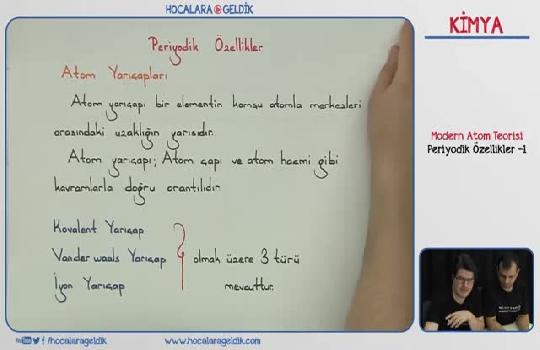 HOCALARA GELDİK
KİMYA
Periyodik Özellikler
Atom Yarıçapları
Atom yarıçapı bir elementin komşu atomla merkezleri
arasındaki uzaklığın yarısıdır.
Atom yarıçapı; Atom çapı ve atom hacmi gibi
kavramlarla doğru orantılıdır.
Kovalent Yarıçap
Vander waals Yarıçap
İyon Yarıçap
olmak üzere 3 türü
mevcuttur.
Modern Atom Teorisi
Periyodik Özellikler -1
/hocalarageldik
www.hocalarageldik.com